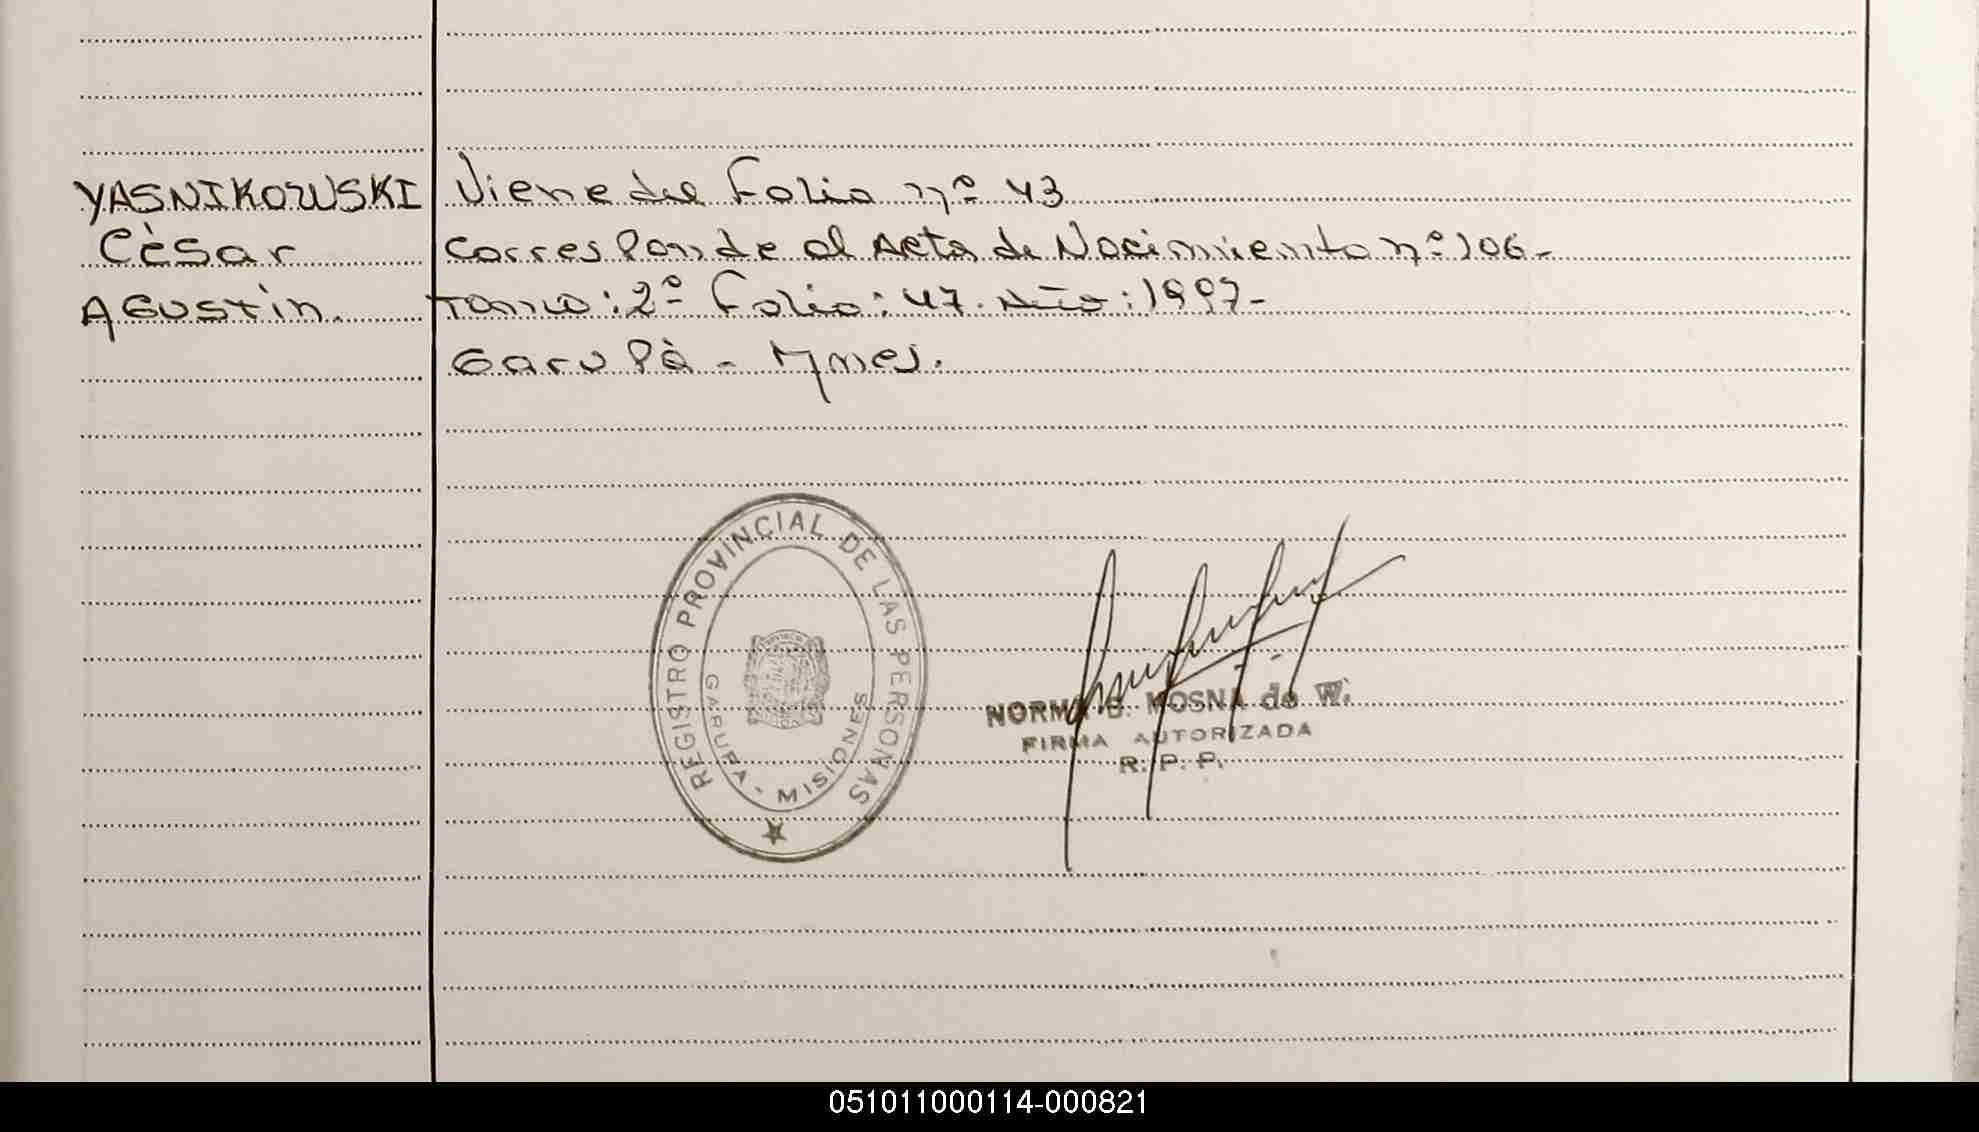 YASNIKOWSKI
Cèsar
AGustin.
Viene del Folio nº 43
Corresponde al Acta de Nacimiento nº 106-
Tomo: 2º Folio: 47. Año: 1997-
Garupà - Mnes.
REGISTRO PROVINCIAL DE LAS PERSONAS
GARUPA - MISIONES
NORMA B. MOSNA de W.
FIRMA AUTORIZADA
R. P. P.
051011000114-000821